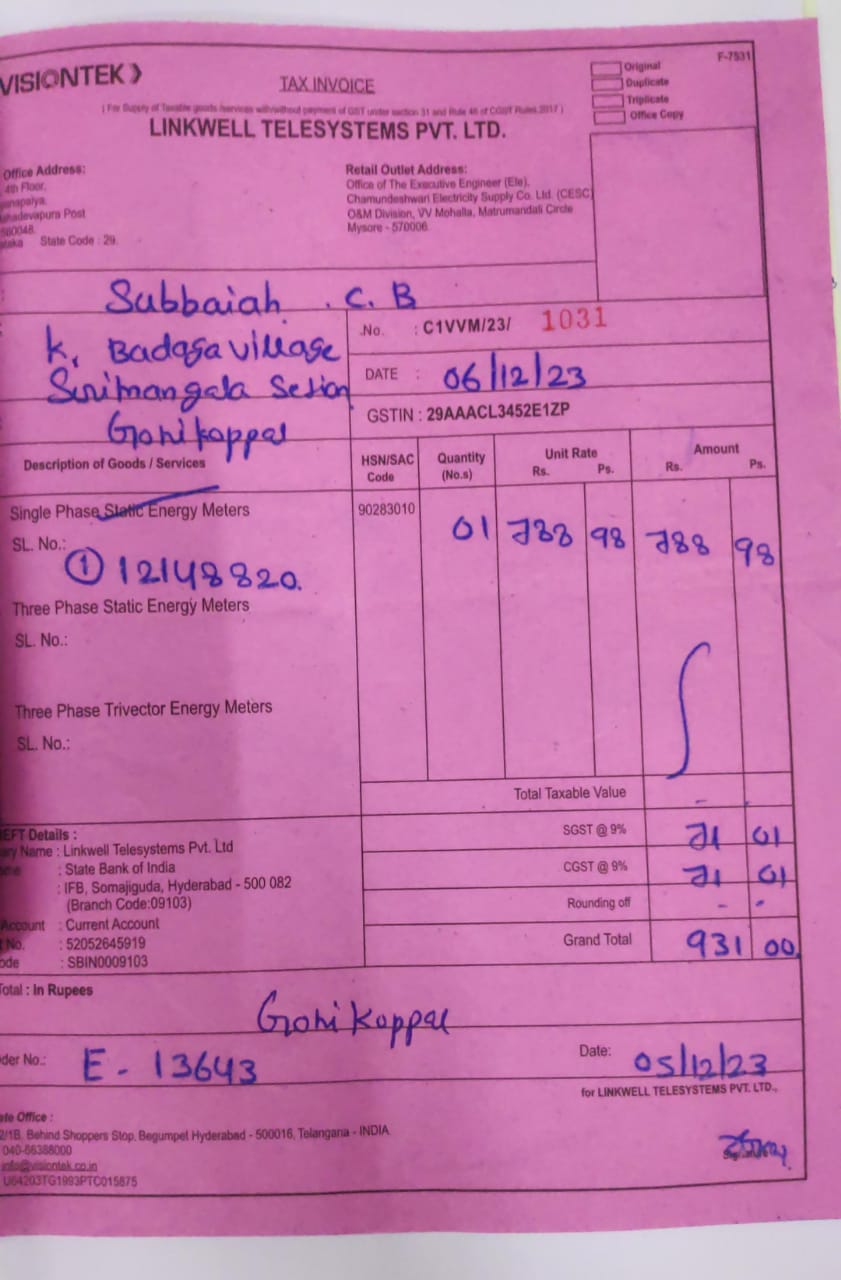 VISIONTEK
TAX INVOICE
F-7531
Original
Duplicate
Triplicate
Office Copy
( For Supply of Taxable goods /services with/without payment of GST under section 31 and Rule 46 of CGST Rules 2017 )
LINKWELL TELESYSTEMS PVT. LTD.
Office Address:
4th Floor,
Post
560048.
State Code : 29.
Retail Outlet Address:
Office of The Executive Engineer (Ele),
Chamundeshwari Electricity Supply Co. Ltd. (CESC)
O&M Division, VV Mohalla, Matrumandali Circle
Mysore - 570006.
Subbaiah . C. B
K. Badaga village
Sirimangala Setion
Gonikoppal
No. : C1VVM/23/ 1031
DATE : 06/12/23
GSTIN : 29AAACL3452E1ZP
Description of Goods / Services HSN/SAC Code Quantity (No.s) Unit Rate Rs. Ps. Amount Rs. Ps.
Single Phase Static Energy Meters 90283010 01 788 98 788 98
SL. No.:
1 12148820.
Three Phase Static Energy Meters
SL. No.:
Three Phase Trivector Energy Meters
SL. No.:
Total Taxable Value -
SGST @ 9% 71 01
CGST @ 9% 71 01
Rounding off - -
Grand Total 931 00
EFT Details :
Name : Linkwell Telesystems Pvt. Ltd
: State Bank of India
: IFB, Somajiguda, Hyderabad - 500 082
(Branch Code:09103)
Account : Current Account
No. : 52052645919
: SBIN0009103
Total : In Rupees
Gonikoppal
No.: E - 13643
Date: 05/12/23
for LINKWELL TELESYSTEMS PVT. LTD.,
Office :
Behind Shoppers Stop, Begumpet Hyderabad - 500016, Telangana - INDIA
040-66388000
info@visiontek.co.in
U64203TG1993PTC015875